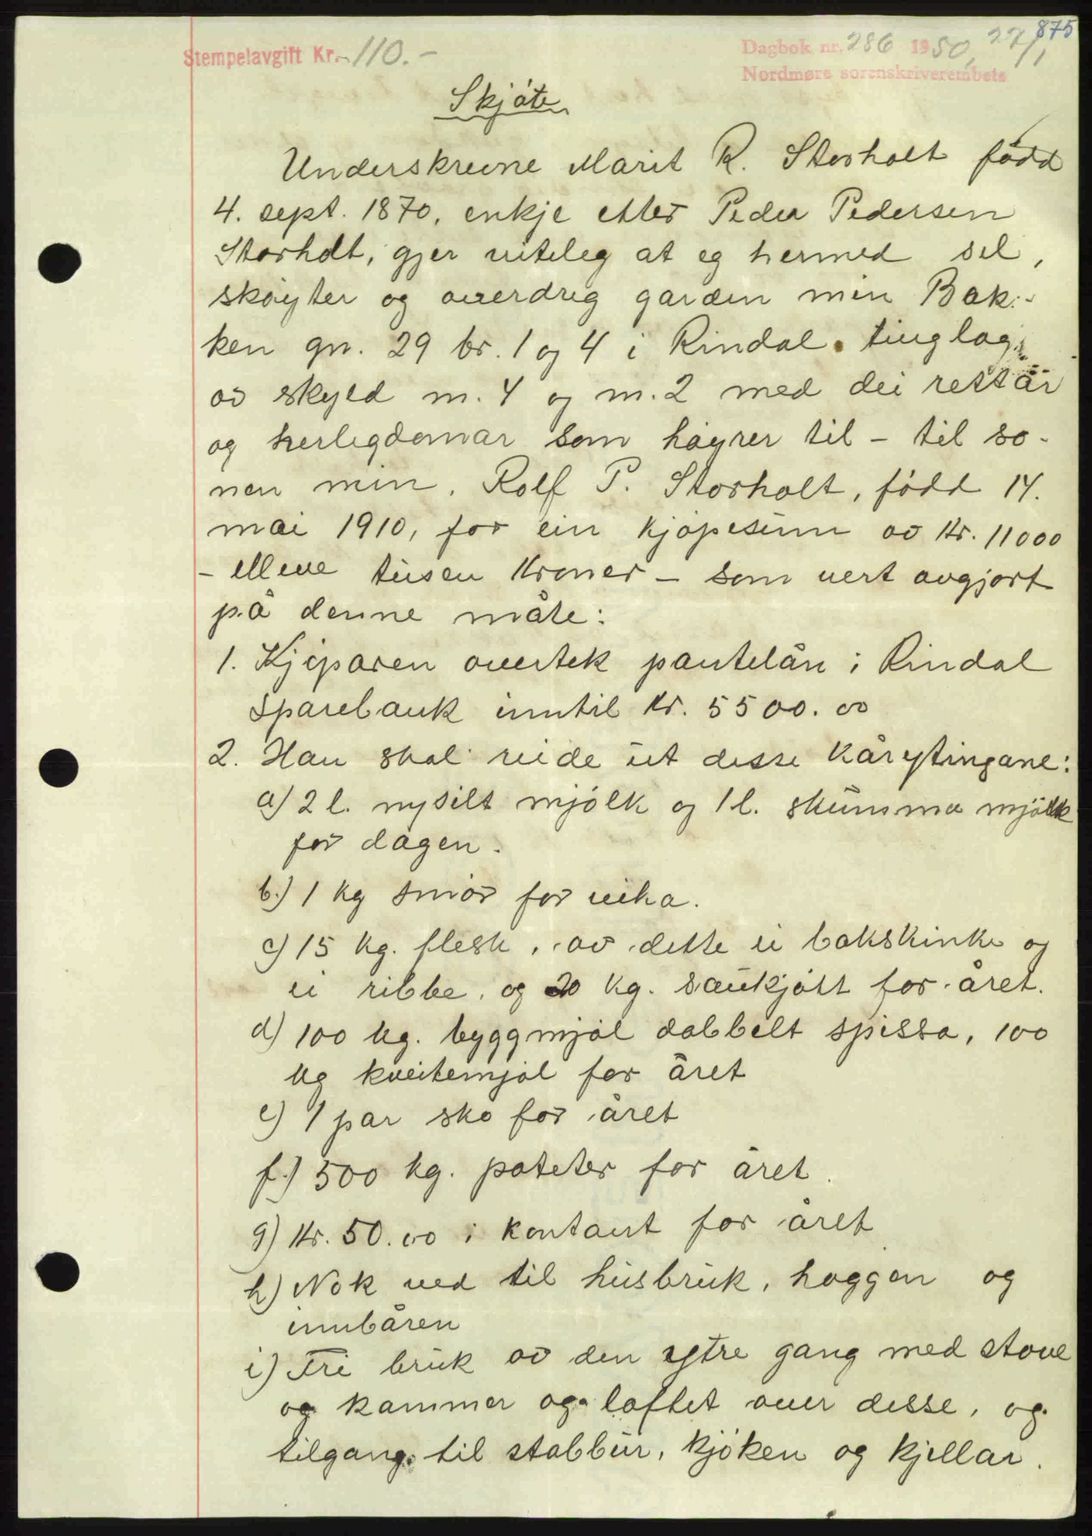 875
Stempelavgift Kr. 110.-
Dagbok nr. 286 1950, 27/1
Nordmøre sorenskriverembete
Skjøte
Underskrevne Marit R. Storholt fødd
4. sept. 1870, enkje etter Peder Pedersen
Storholt, gjer viteleg at eg hermed sel,
skøyter og overdreg garden min Bak-
ken gn. 29 br. 1 og 4 i Rindal tinglag
av skyld m. 4 og m. 2 med dei rettar
og herlegdomar som høyrer til - til so-
nen min, Rolf P. Storholt, fødd 14.
mai 1910, for ein kjøpesum av Kr. 11000
- elleve tusen Kroner - som vert avgjort
på denne måte:
1. Kjøparen overtek pantelån i Rindal
Sparebank inntil Kr. 5500.00
2. Han skal reide ut desse kårytingane:
a) 2 l. nysilt mjølk og 1 l. skumma mjølk
for dagen.
b.) 1 kg smør for veka.
c) 15 kg. flesk, av dette ei bakskinke og
ei ribbe, og 20 kg. saukjøtt for året.
d) 100 kg. byggmjøl dobbelt spissa, 100
kg kveitemjøl for året
e) 1 par sko for året
f.) 500 kg. poteter for året.
g) Kr. 50.00 i kontant for året
h) Nok ved til husbruk, hoggen og
innbåren
i) Fri bruk av den ytre gang med stove
og kammer og loftet over desse, og
tilgang til stabbur, kjøken og kjellar.